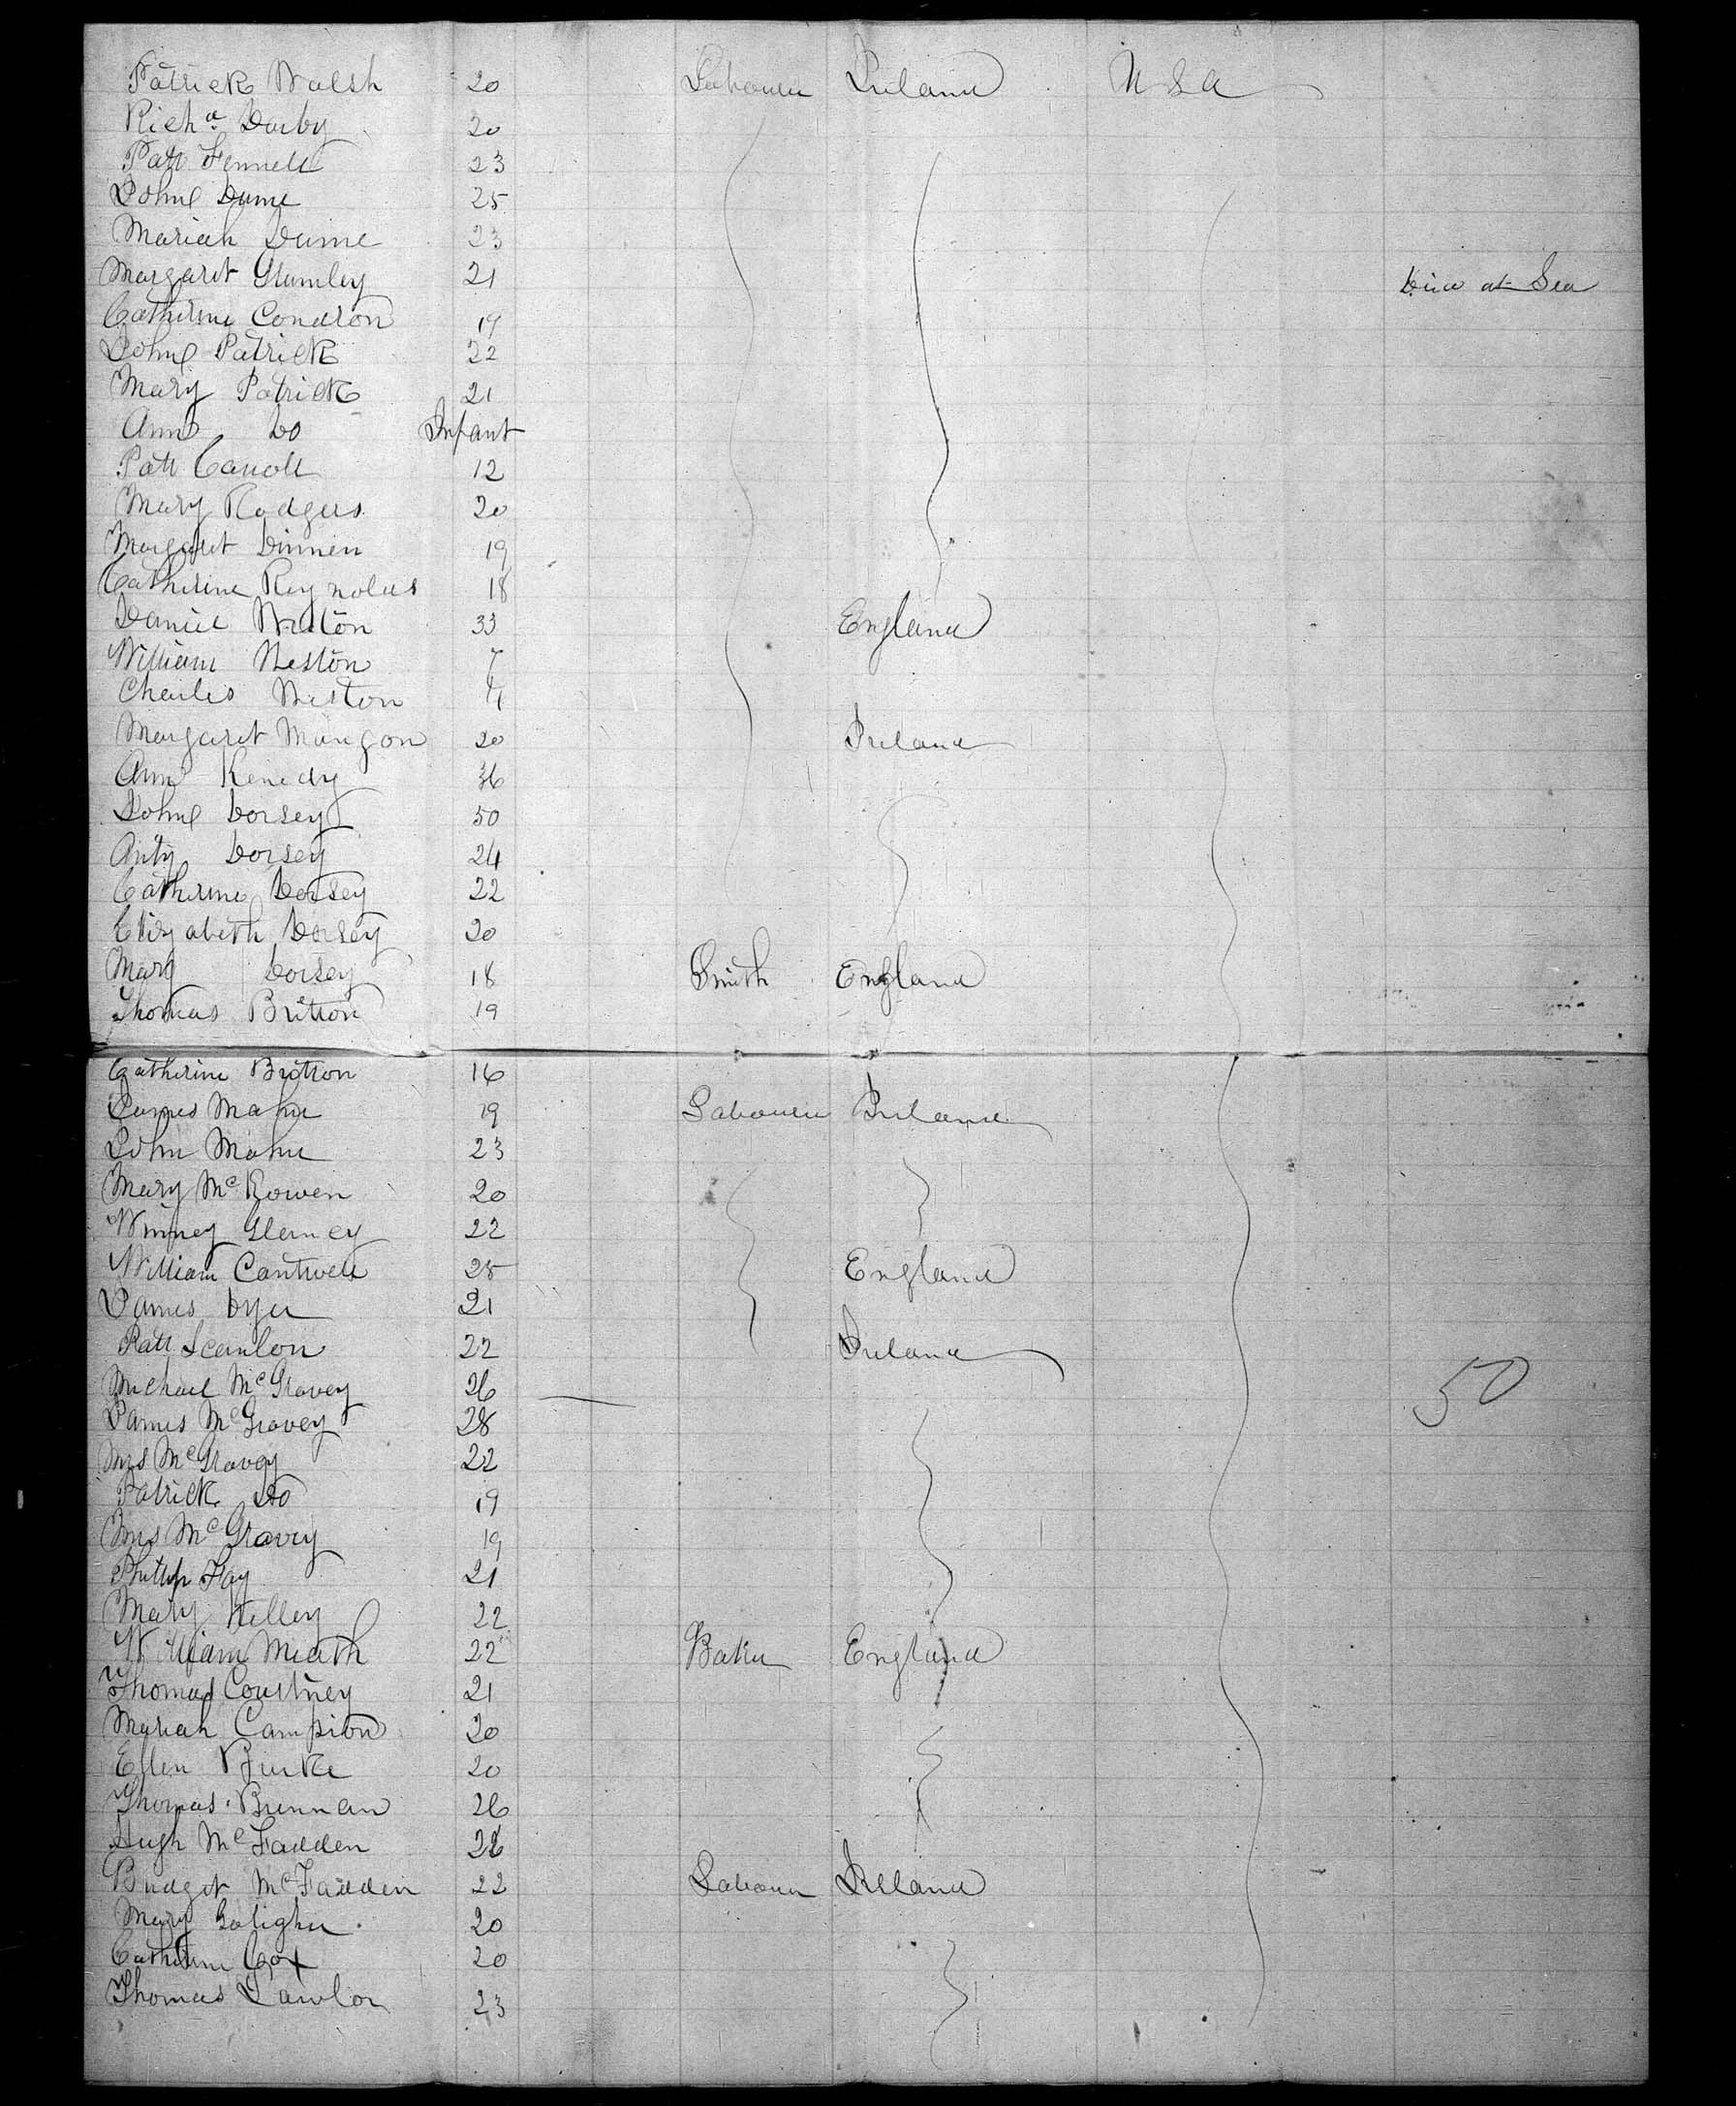 Patrick Walsh 20 Labourer Ireland U S A
Richd Darby 20
Patt Fennell 23
John Dunne 25
Mariah Dunne 23
Margaret Glumley 21 Died at Sea
Catherine Condron 19
John Patrick 22
Mary Patrick 21
Ann Do Infant
Patt Carroll 12
Mary Rodgers 20
Margaret Dinnen 19
Catherine Reynolds 18
Daniel Weston 33 England
William Weston 7
Charles Weston 4
Margaret Mangon 20 Ireland
Ann Kenedy 36
John Dorsey 50
Anty Dorsey 24
Catherine Dorsey 22
Elizabeth Dorsey 20
Mary Dorsey 18 Smith England
Thomas Britton 19
Catherine Britton 16
James Maher 19 Labourer Ireland
John Maher 23
Mary McKowen 20
Winney Glenney 22
William Cantwell 25 England
James Dyer 21
Patt Scanlon 22 Ireland
Michael McGravey 26 50
James McGravey 28
Mrs McGravey 22
Patrick Do 19
Mrs McGravey 19
Phillip Fay 21
Mary Kelley 22
William Meath 22 Baker England
Thomas Courtney 21
Mariah Campion 20
Ellen Burke 20
Thomas Brennan 26
Hugh McFadden 28
Bridget McFadden 22 Labourer Ireland
Mary 20
Catherine Cox 20
Thomas Lawlor 23